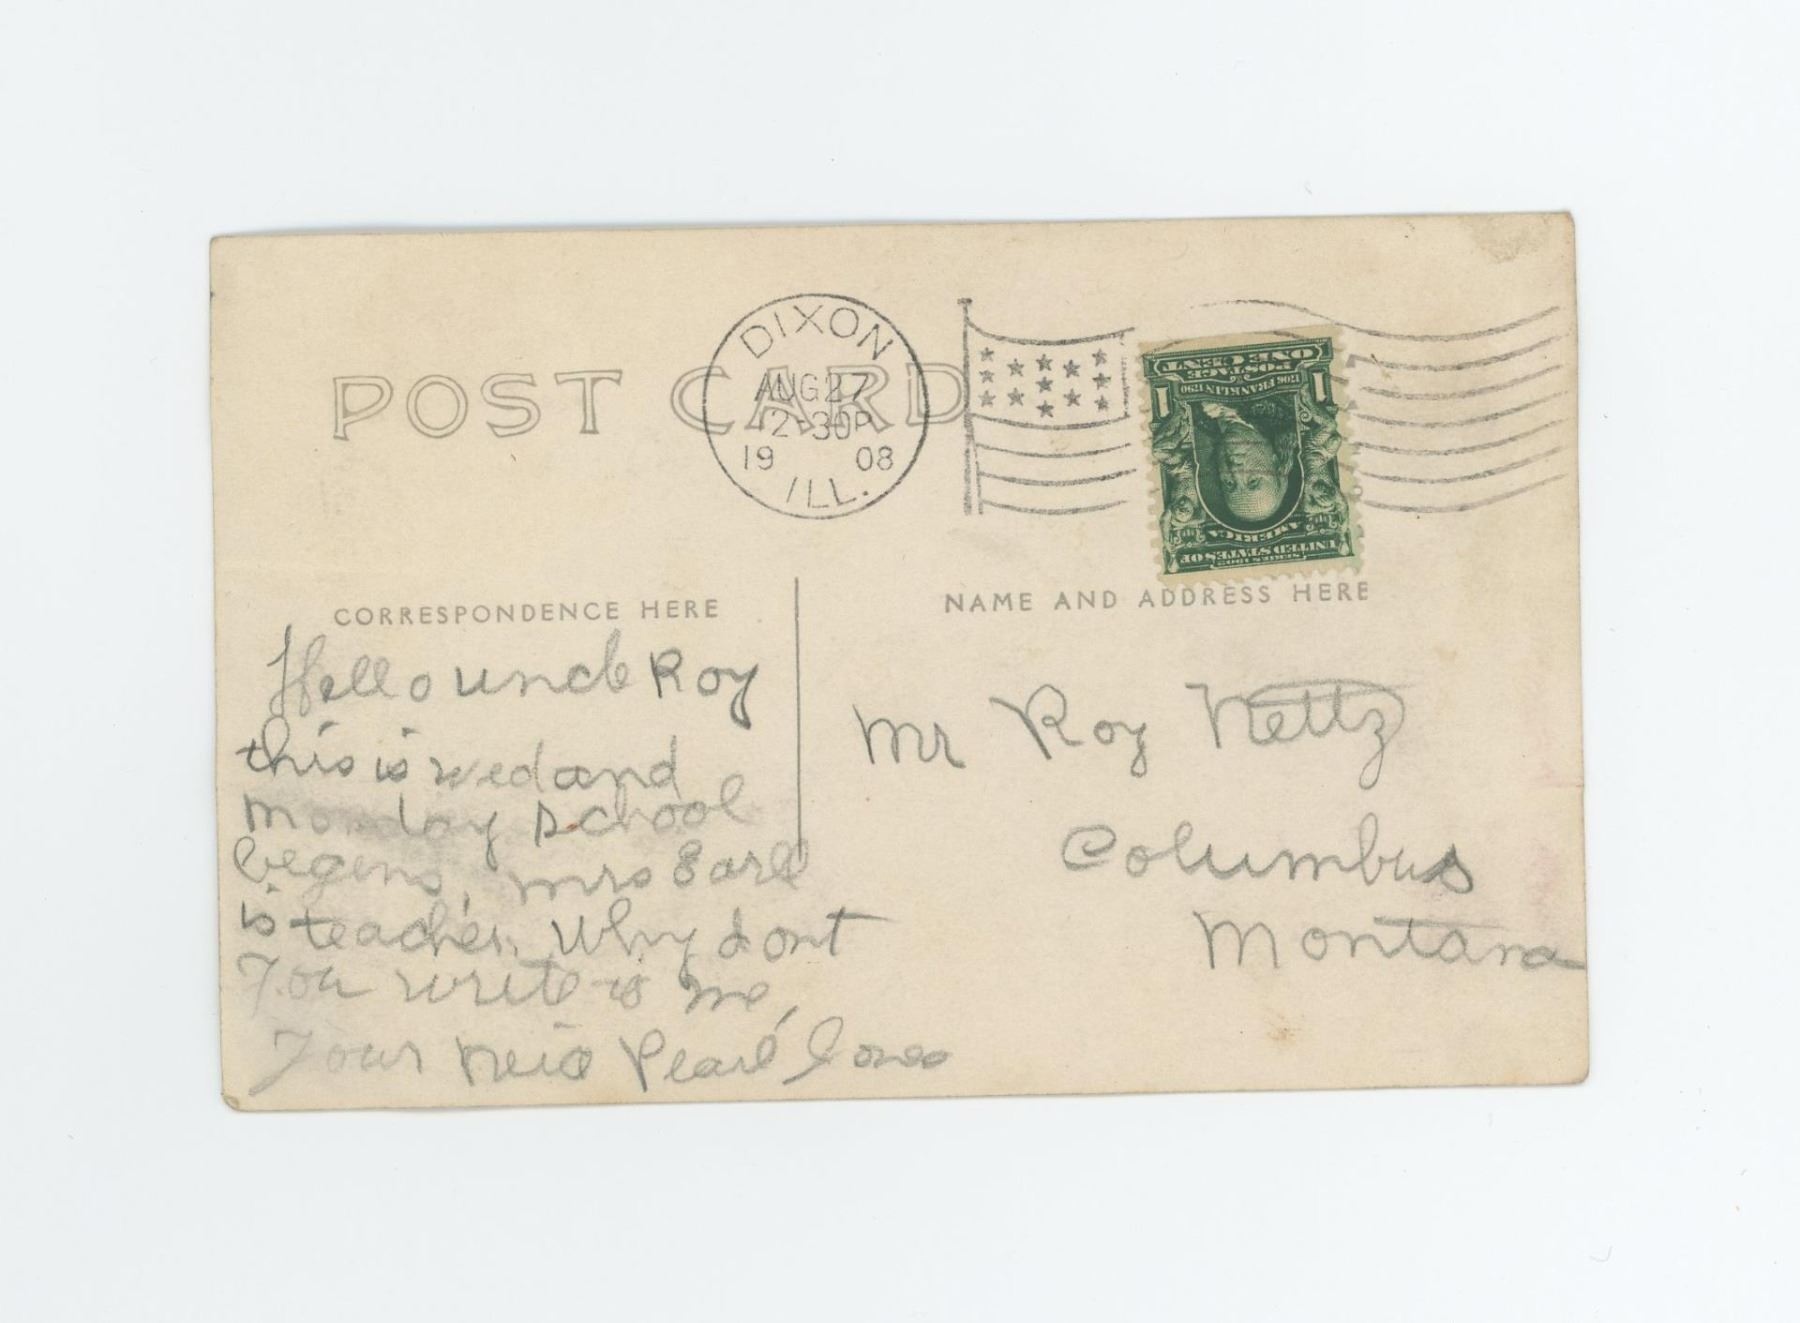 POST CARD
DIXON
AUG 27
12-30P
19 08
ILL.
ONE CENT
POSTAGE
1706 FRANKLIN 1790
1 1
UNITED STATES OF
AMERICA
SERIES 1902
CORRESPONDENCE HERE
Hello uncle Roy
this is wed and
Monday School
begens, Mrs Earl
is teacher. Why dont
You write to me,
Your Neic Pearl Jones
NAME AND ADDRESS HERE
Mr Roy Nettz
Columbus
Montana